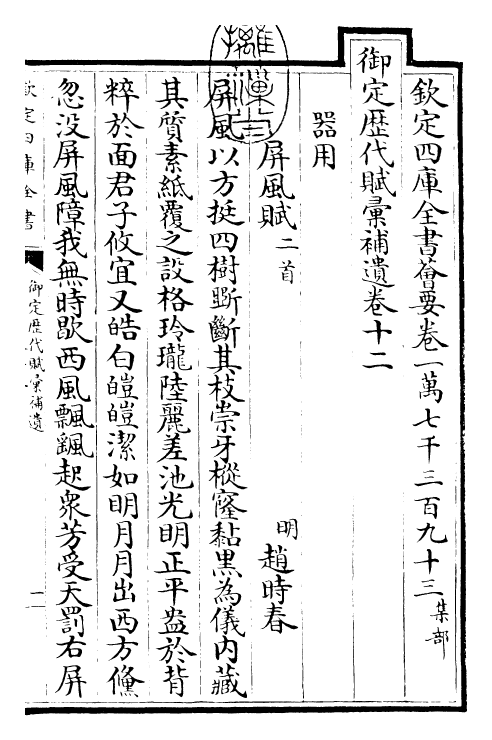 欽定四庫全書薈要卷一萬七千三百九十三集部
御定歷代賦彙補遺卷十二
器用
屏風賦二首 明趙時春
屏風以方挺四樹斲斷其枝崇牙樅窿黏黑為儀內藏
其質素紙覆之設格玲瓏陸麗差池光明正平盎於背
粹於面君子攸宜又皓白皚皚潔如明月月出西方儵
忽没屏風障我無時歇西風飄飄起衆芳受天罰右屏
欽定四庫全書
御定歷代賦彙補遺
一